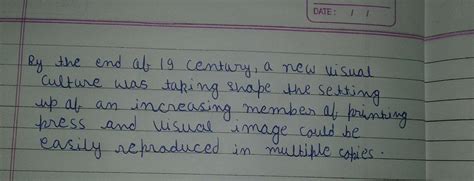 DATE: / /
By the end of 19 century, a new visual
culture was taking shape the setting
up of an increasing member of printing
press and visual image could be
easily reproduced in multiple copies.